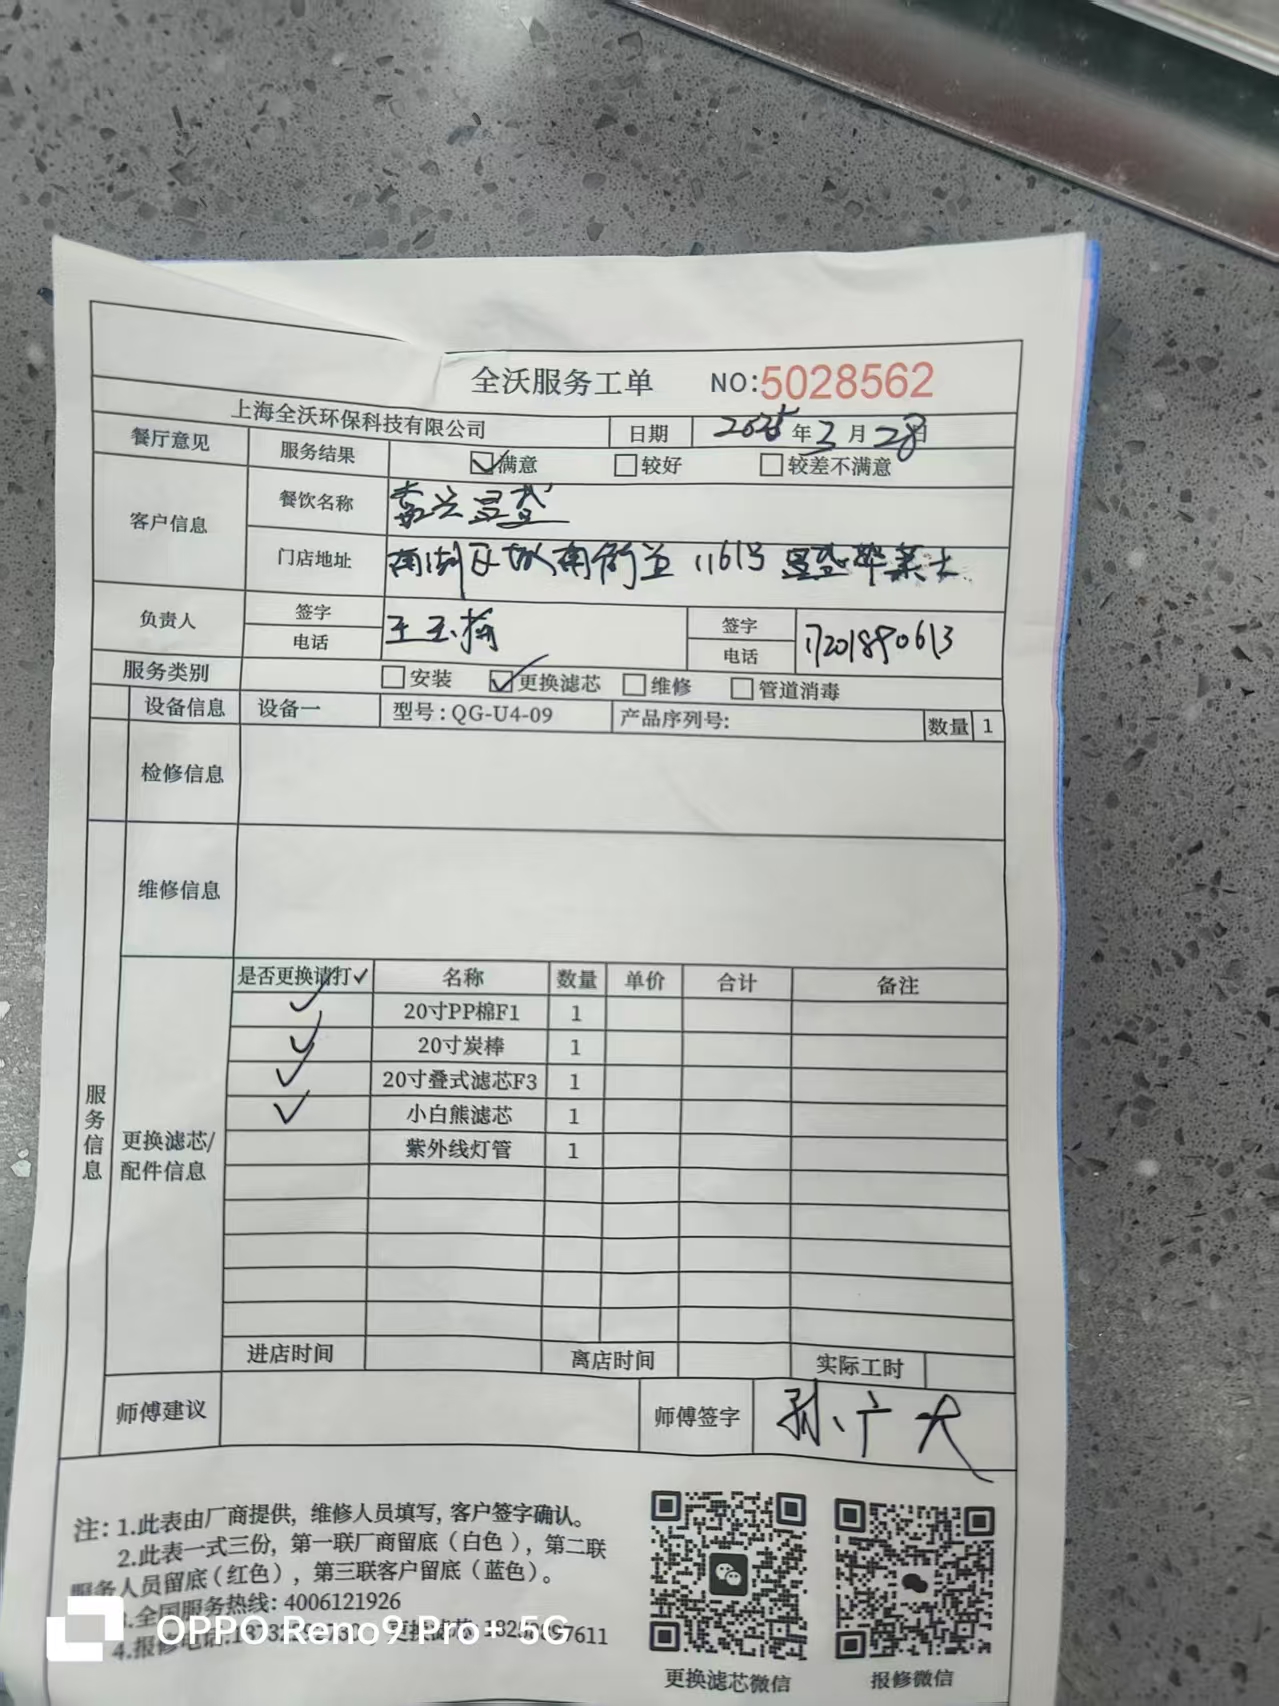 全沃服务工单 NO:5028562
上海全沃环保科技有限公司 日期 2025年3月28日
餐厅意见 服务结果 满意 较好 较差不满意
客户信息 餐饮名称 嘉兴昱盛
门店地址 南湖区城南街道1161号
负责人 签字 王玉梅 签字
电话 电话 17201890613
服务类别 安装 更换滤芯 维修 管道消毒
设备信息 设备一 型号:QG-U4-09 产品序列号: 数量 1
检修信息
维修信息
服务信息
更换滤芯/
配件信息
是否更换请打✓ 名称 数量 单价 合计 备注
✓ 20寸PP棉F1 1
✓ 20寸炭棒 1
✓ 20寸叠式滤芯F3 1
✓ 小白熊滤芯 1
紫外线灯管 1
进店时间 离店时间 实际工时
师傅建议 师傅签字 孙广大
注:1.此表由厂商提供,维修人员填写,客户签字确认。
2.此表一式三份,第一联厂商留底(白色),第二联
服务人员留底(红色),第三联客户留底(蓝色)。
3.全国服务热线:4006121926
4.报修电话: 更换滤芯
更换滤芯微信 报修微信
OPPO Reno9 Pro+ 5G